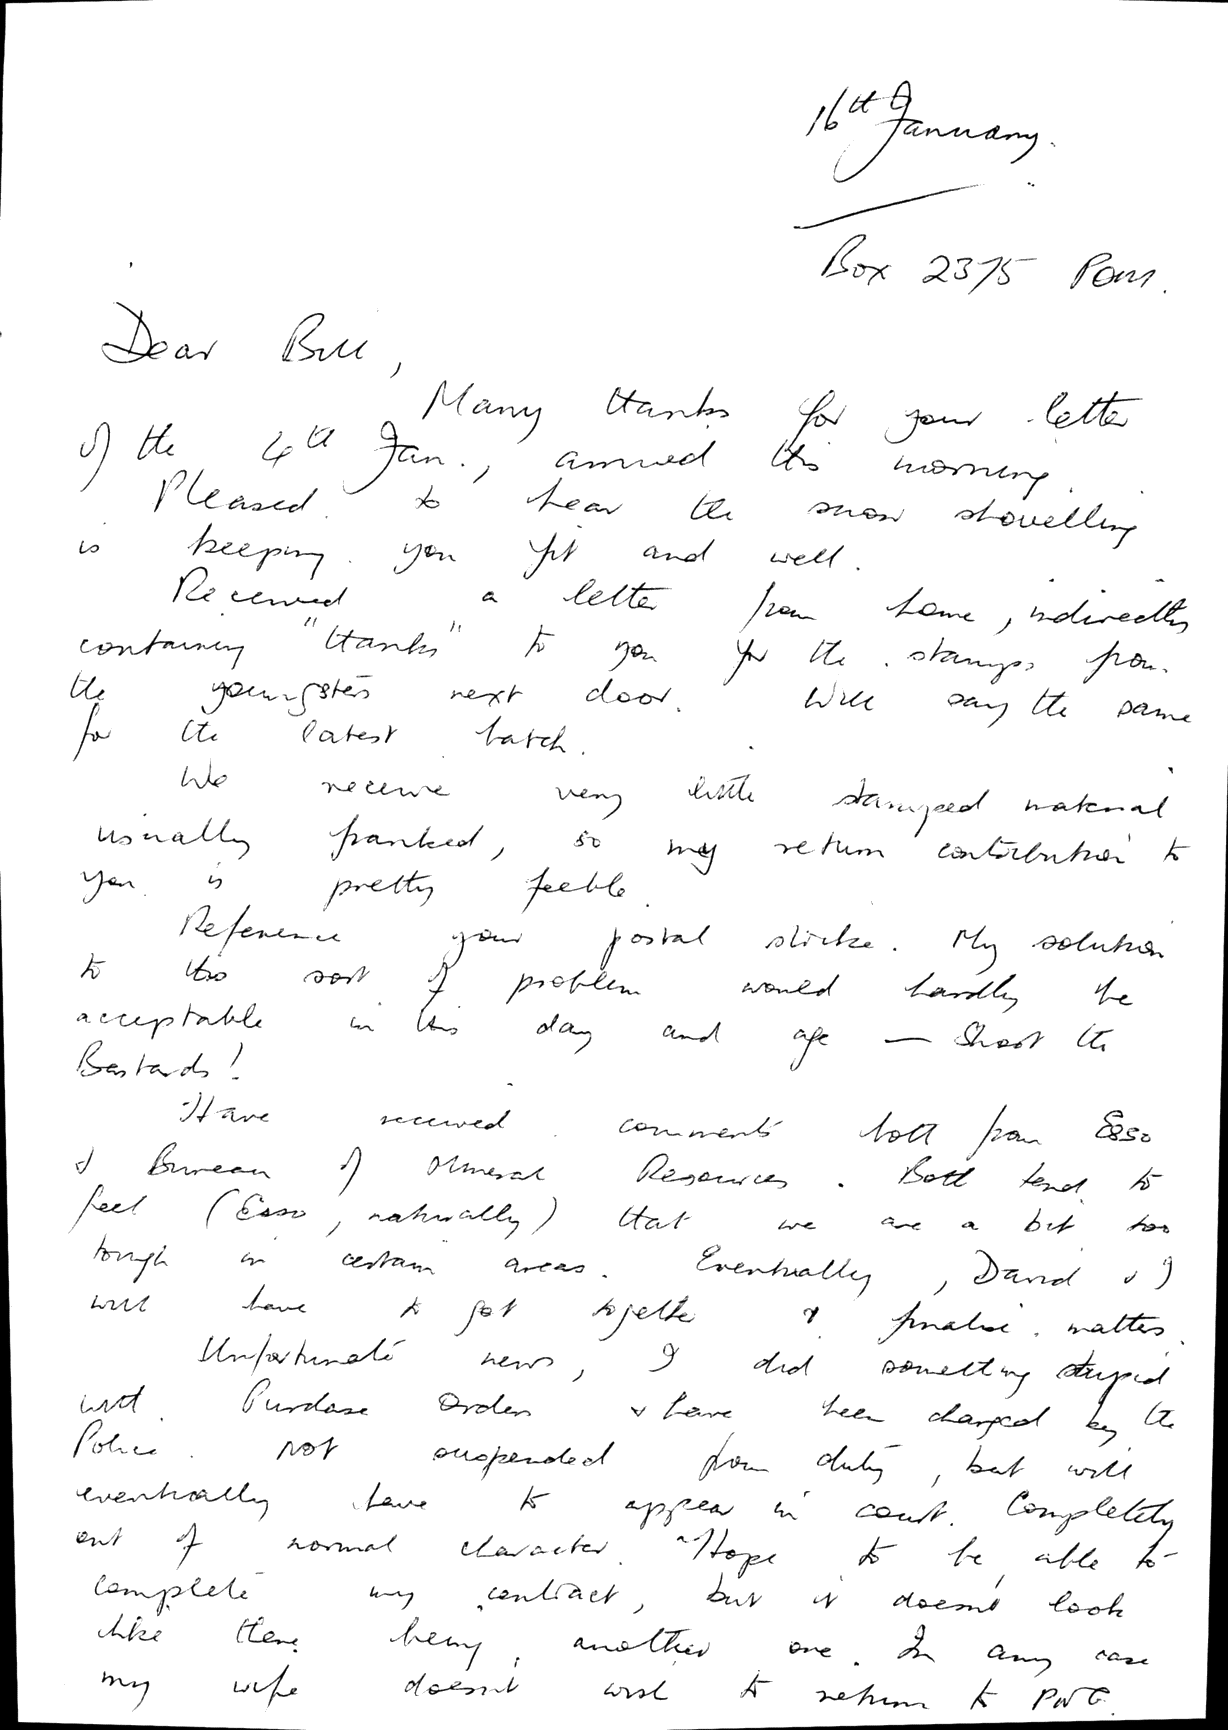 16th January.
Box 2375 Pom.
Dear Bill,
Many thanks for your letter
of the 4th Jan., arrived this morning.
Pleased to hear the snow shovelling
is keeping you fit and well.
Received a letter from home, indirectly
containing "thanks" to you for the stamps from
the youngsters next door. Will say the same
for the latest batch.
We receive very little stamped material
usually franked, so my return contribution to
you is pretty feeble.
Reference your postal strike. My solution
to this sort of problem would hardly be
acceptable in this day and age — Shoot the
Bastards!
Have received comments both from Esso
& Bureau of Mineral Resources. Both tend to
feel (Esso, naturally) that we are a bit too
tough in certain areas. Eventually, David & I
will have to get together & finalise matters.
Unfortunate news, I did something stupid
with Purchase Orders & have been charged by the
Police. Not suspended from duty, but will
eventually have to appear in court. Completely
out of normal character. Hope to be able to
complete my contract, but it doesn't look
like there being another one. In any case
my wife doesn't wish to return to PNG.